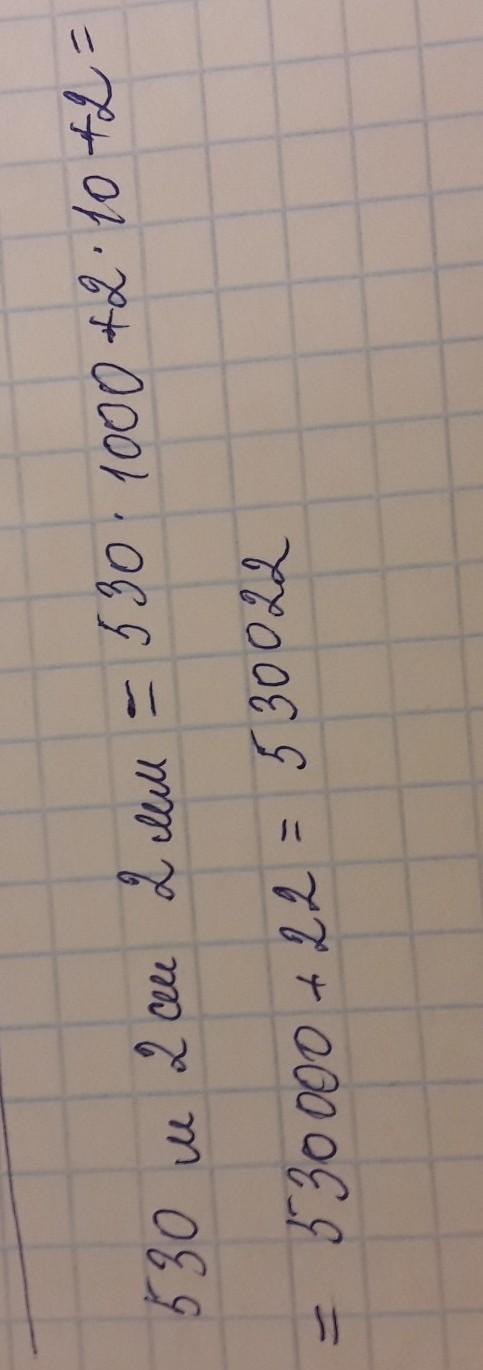 530 м 2 см 2 мм = 530 · 1000 + 2 · 10 + 2 =
= 530 000 + 22 = 530022